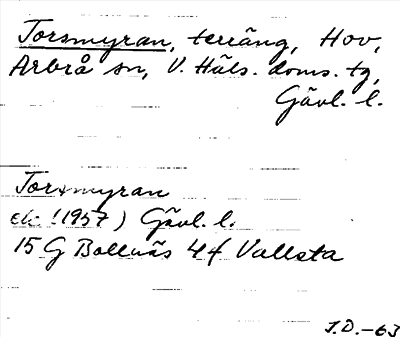 Torsmyran, terräng, Hov,
Arbrå sn, V. Häls. doms. tg,
Gävl. l.
Torsmyran
ek. (1957) Gävl. l.
15 G Bollnäs 4 f Vallsta
J.D.-63